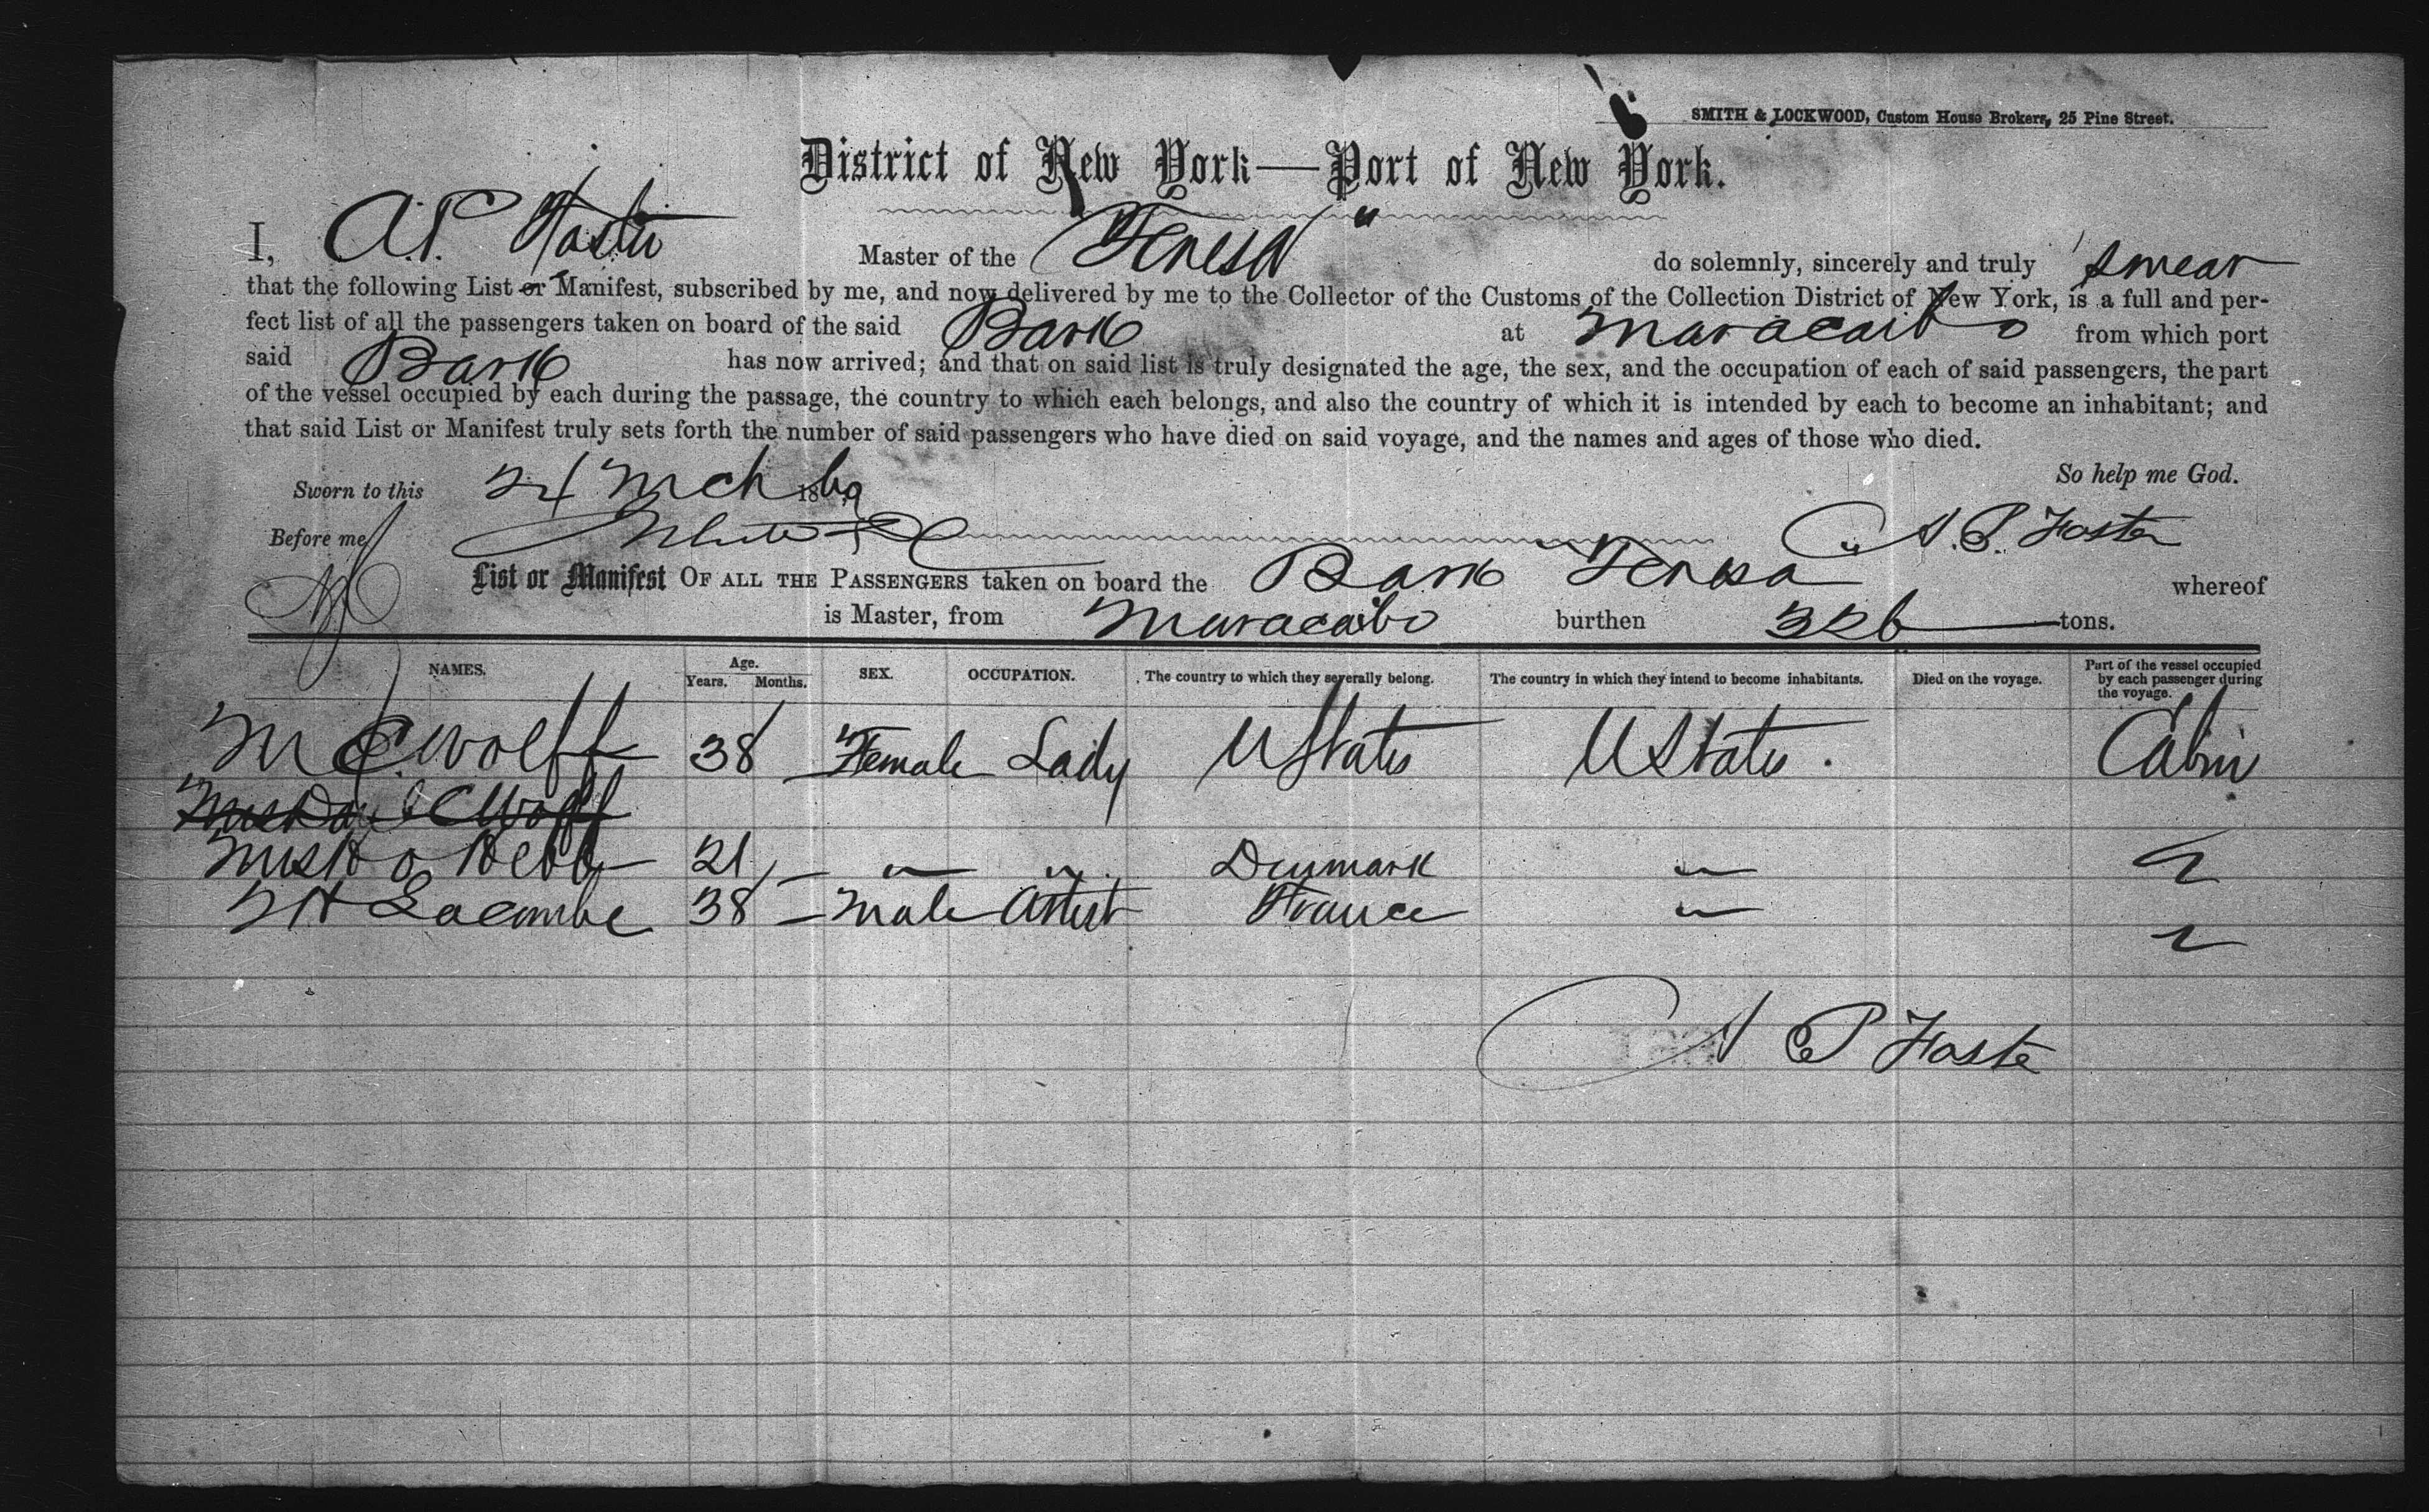 SMITH & LOCKWOOD, Custom House Brokers, 25 Pine Street.
District of New York—Port of New York.
I, A.P. Foster Master of the "Teresa" do solemnly, sincerely and truly swear
that the following List or Manifest, subscribed by me, and now delivered by me to the Collector of the Customs of the Collection District of New York, is a full and per-
fect list of all the passengers taken on board of the said Bark at Maracaibo from which port
said Bark has now arrived; and that on said list is truly designated the age, the sex, and the occupation of each of said passengers, the part
of the vessel occupied by each during the passage, the country to which each belongs, and also the country of which it is intended by each to become an inhabitant; and
that said List or Manifest truly sets forth the number of said passengers who have died on said voyage, and the names and ages of those who died.
So help me God.
Sworn to this 24 Mch 1869
Before me A. P. Foster
List or Manifest OF ALL THE PASSENGERS taken on board the Bark Teresa whereof
is Master, from Maracaibo burthen 326 tons.
NAMES. Age. Years. Months. SEX. OCCUPATION. The country to which they severally belong. The country in which they intend to become inhabitants. Died on the voyage. Part of the vessel occupied by each passenger during the voyage.
M C. Wolff 38 Female Lady U States U States. Cabin
C Wolff
Miss 21 — " Denmark —
Lacombe 38 — Male Artist France —
A P Foste